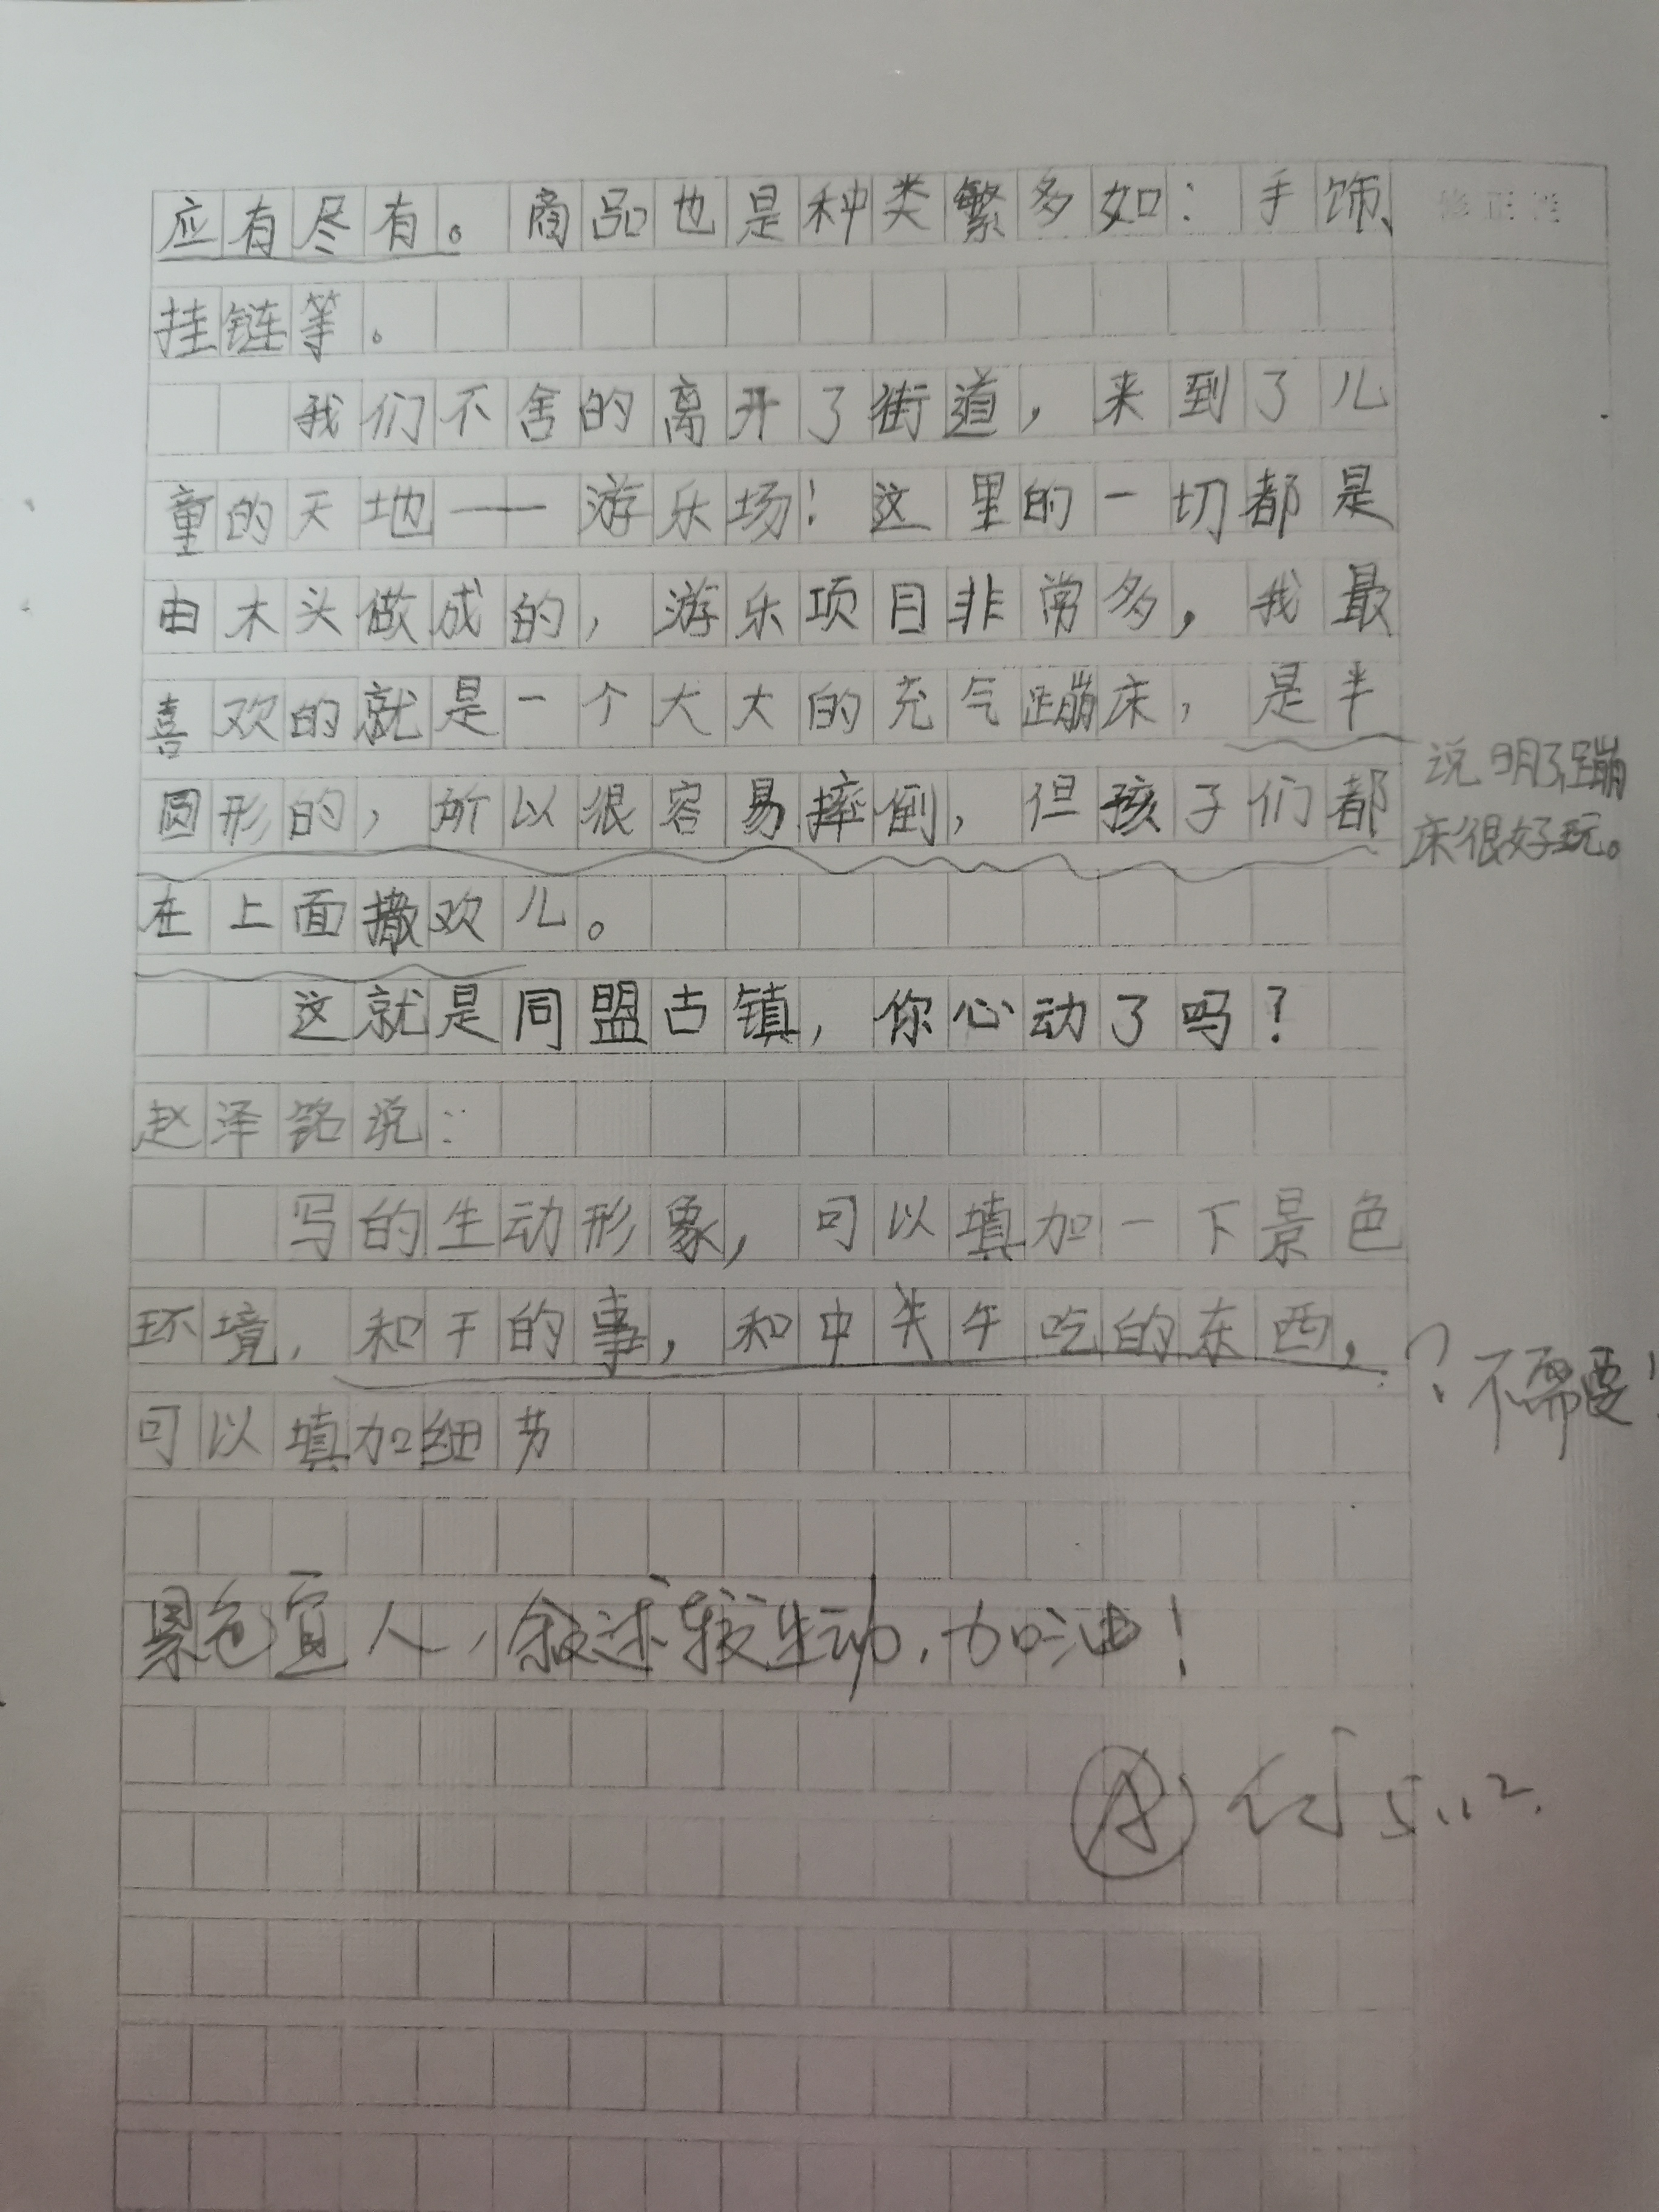 应有尽有。商品也是种类繁多如：手饰、
挂链等。
我们不舍的离开了街道，来到了儿
童的天地——游乐场！这里的一切都是
由木头做成的，游乐项目非常多，我最
喜欢的就是一个大大的充气蹦床，是半
圆形的，所以很容易摔倒，但孩子们都
说明了蹦
床很好玩。
在上面撒欢儿。
这就是同盟古镇，你心动了吗？
赵泽铭说：
写的生动形象，可以填加一下景色
环境，和干的事，和中失午吃的东西，
？不需要！
可以填加细节
景色宜人，叙述较生动，加油！
A 付 5.12.